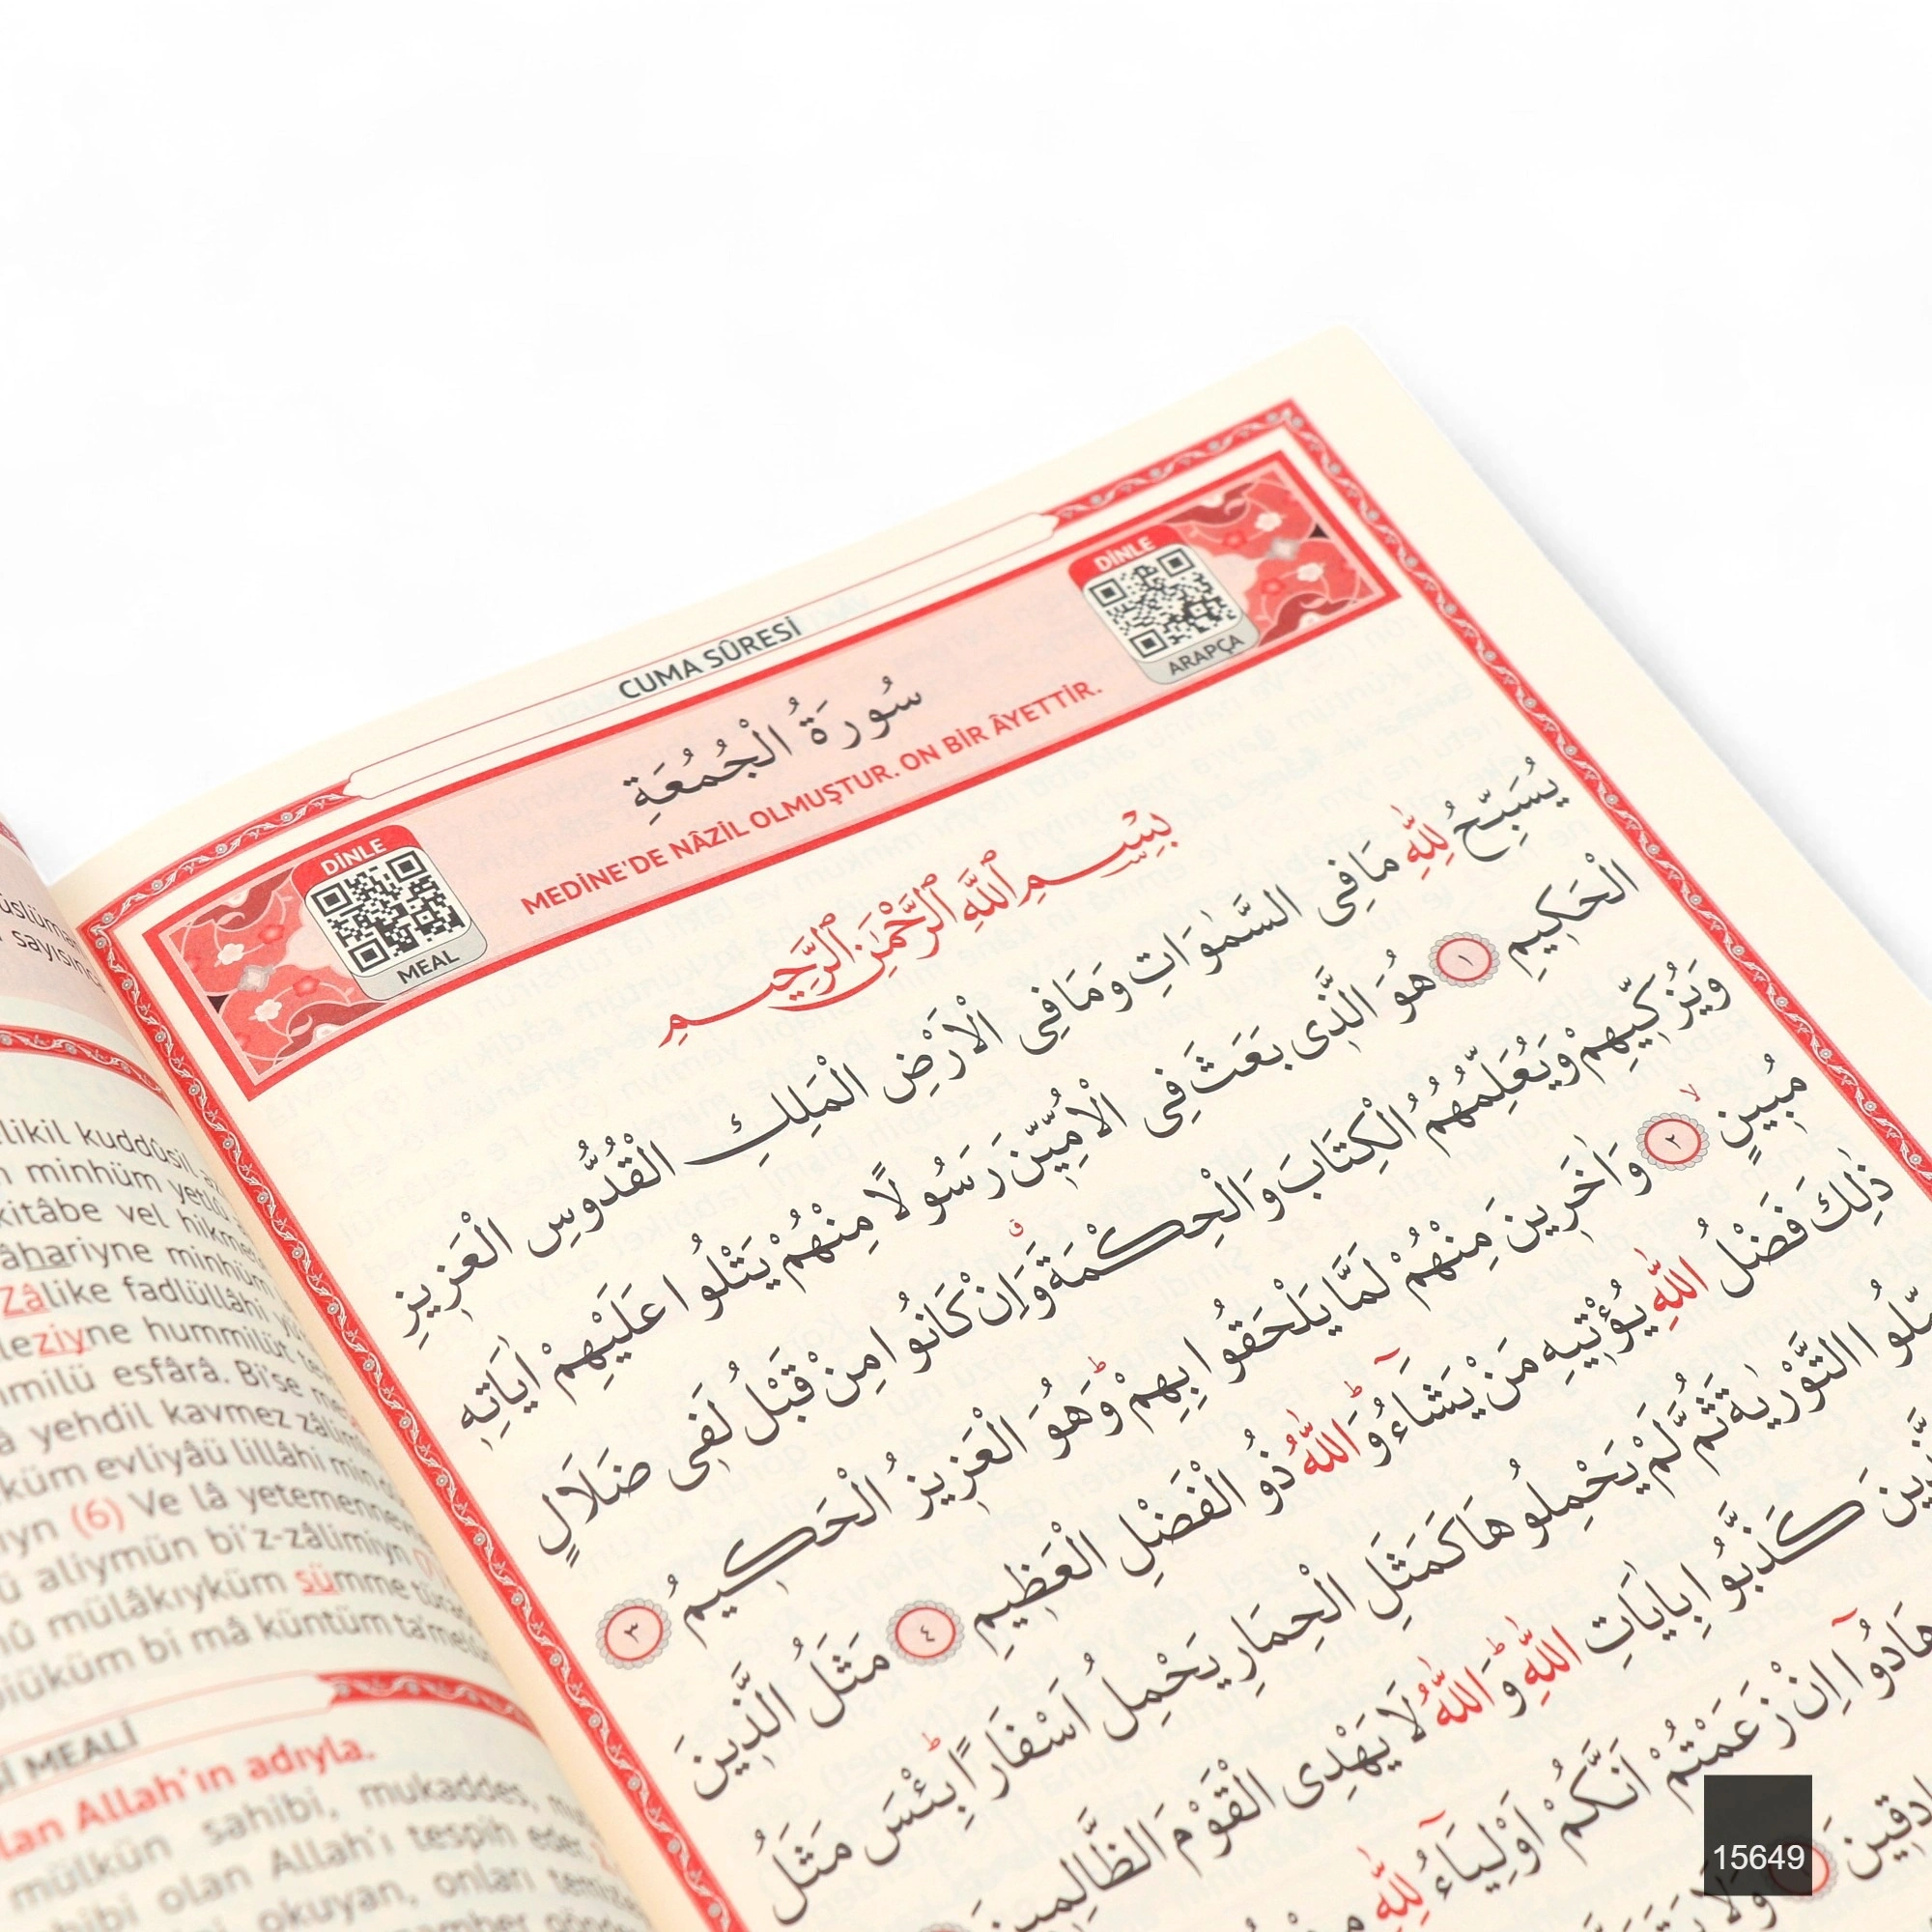 CUMA SÛRESİ
DİNLE
ARAPÇA
سُورَةُ الْجُمُعَةِ
MEDİNE'DE NÂZİL OLMUŞTUR. ON BİR ÂYETTİR.
DİNLE
MEAL
بِسْمِ اللَّهِ الرَّحْمٰنِ الرَّحِيمِ
يُسَبِّحُ لِلّٰهِ مَا فِى السَّمٰوَاتِ وَمَا فِى الْاَرْضِ الْمَلِكِ الْقُدُّوسِ الْعَزِيزِ
الْحَكِيمِ ١ هُوَ الَّذِى بَعَثَ فِى الْاُمِّيّٖنَ رَسُولًا مِنْهُمْ يَتْلُوا عَلَيْهِمْ اٰيَاتِهٖ
وَيُزَكّٖيهِمْ وَيُعَلِّمُهُمُ الْكِتَابَ وَالْحِكْمَةَ وَاِنْ كَانُوا مِنْ قَبْلُ لَفٖى ضَلَالٍ
مُبٖينٍ ٢ وَاٰخَرٖينَ مِنْهُمْ لَمَّا يَلْحَقُوا بِهِمْ وَهُوَ الْعَزٖيزُ الْحَكٖيمُ ٣
ذٰلِكَ فَضْلُ اللّٰهِ يُؤْتٖيهِ مَنْ يَشَاءُ وَاللّٰهُ ذُو الْفَضْلِ الْعَظٖيمِ ٤ مَثَلُ الَّذٖينَ
التَّوْرٰيةَ ثُمَّ لَمْ يَحْمِلُوهَا كَمَثَلِ الْحِمَارِ يَحْمِلُ اَسْفَارًا بِئْسَ مَثَلُ
كَذَّبُوا بِاٰيَاتِ اللّٰهِ وَاللّٰهُ لَا يَهْدِى الْقَوْمَ الظَّالِمٖينَ
اِنْ زَعَمْتُمْ اَنَّكُمْ اَوْلِيَاءُ لِلّٰهِ
likil kuddûsil
minhüm yetlû
kitâbe vel hikmete
âhariyne minhüm
Zâlike fadlüllâhi
leziyne hummilüt
esfârâ. Bi'se
yehdil kavmez zâlimiy
küm evliyâü lillâhi min
(6) Ve lâ yetemennev
aliymün bi'z-zâlimiyn
mülâkıyküm sümme
biüküm bi mâ küntüm ta'melûn
MEALİ
lan Allah'ın adıyla.
mülkün sahibi, mukaddes,
olan Allah'ı tespih eder.
okuyan, onları
15649